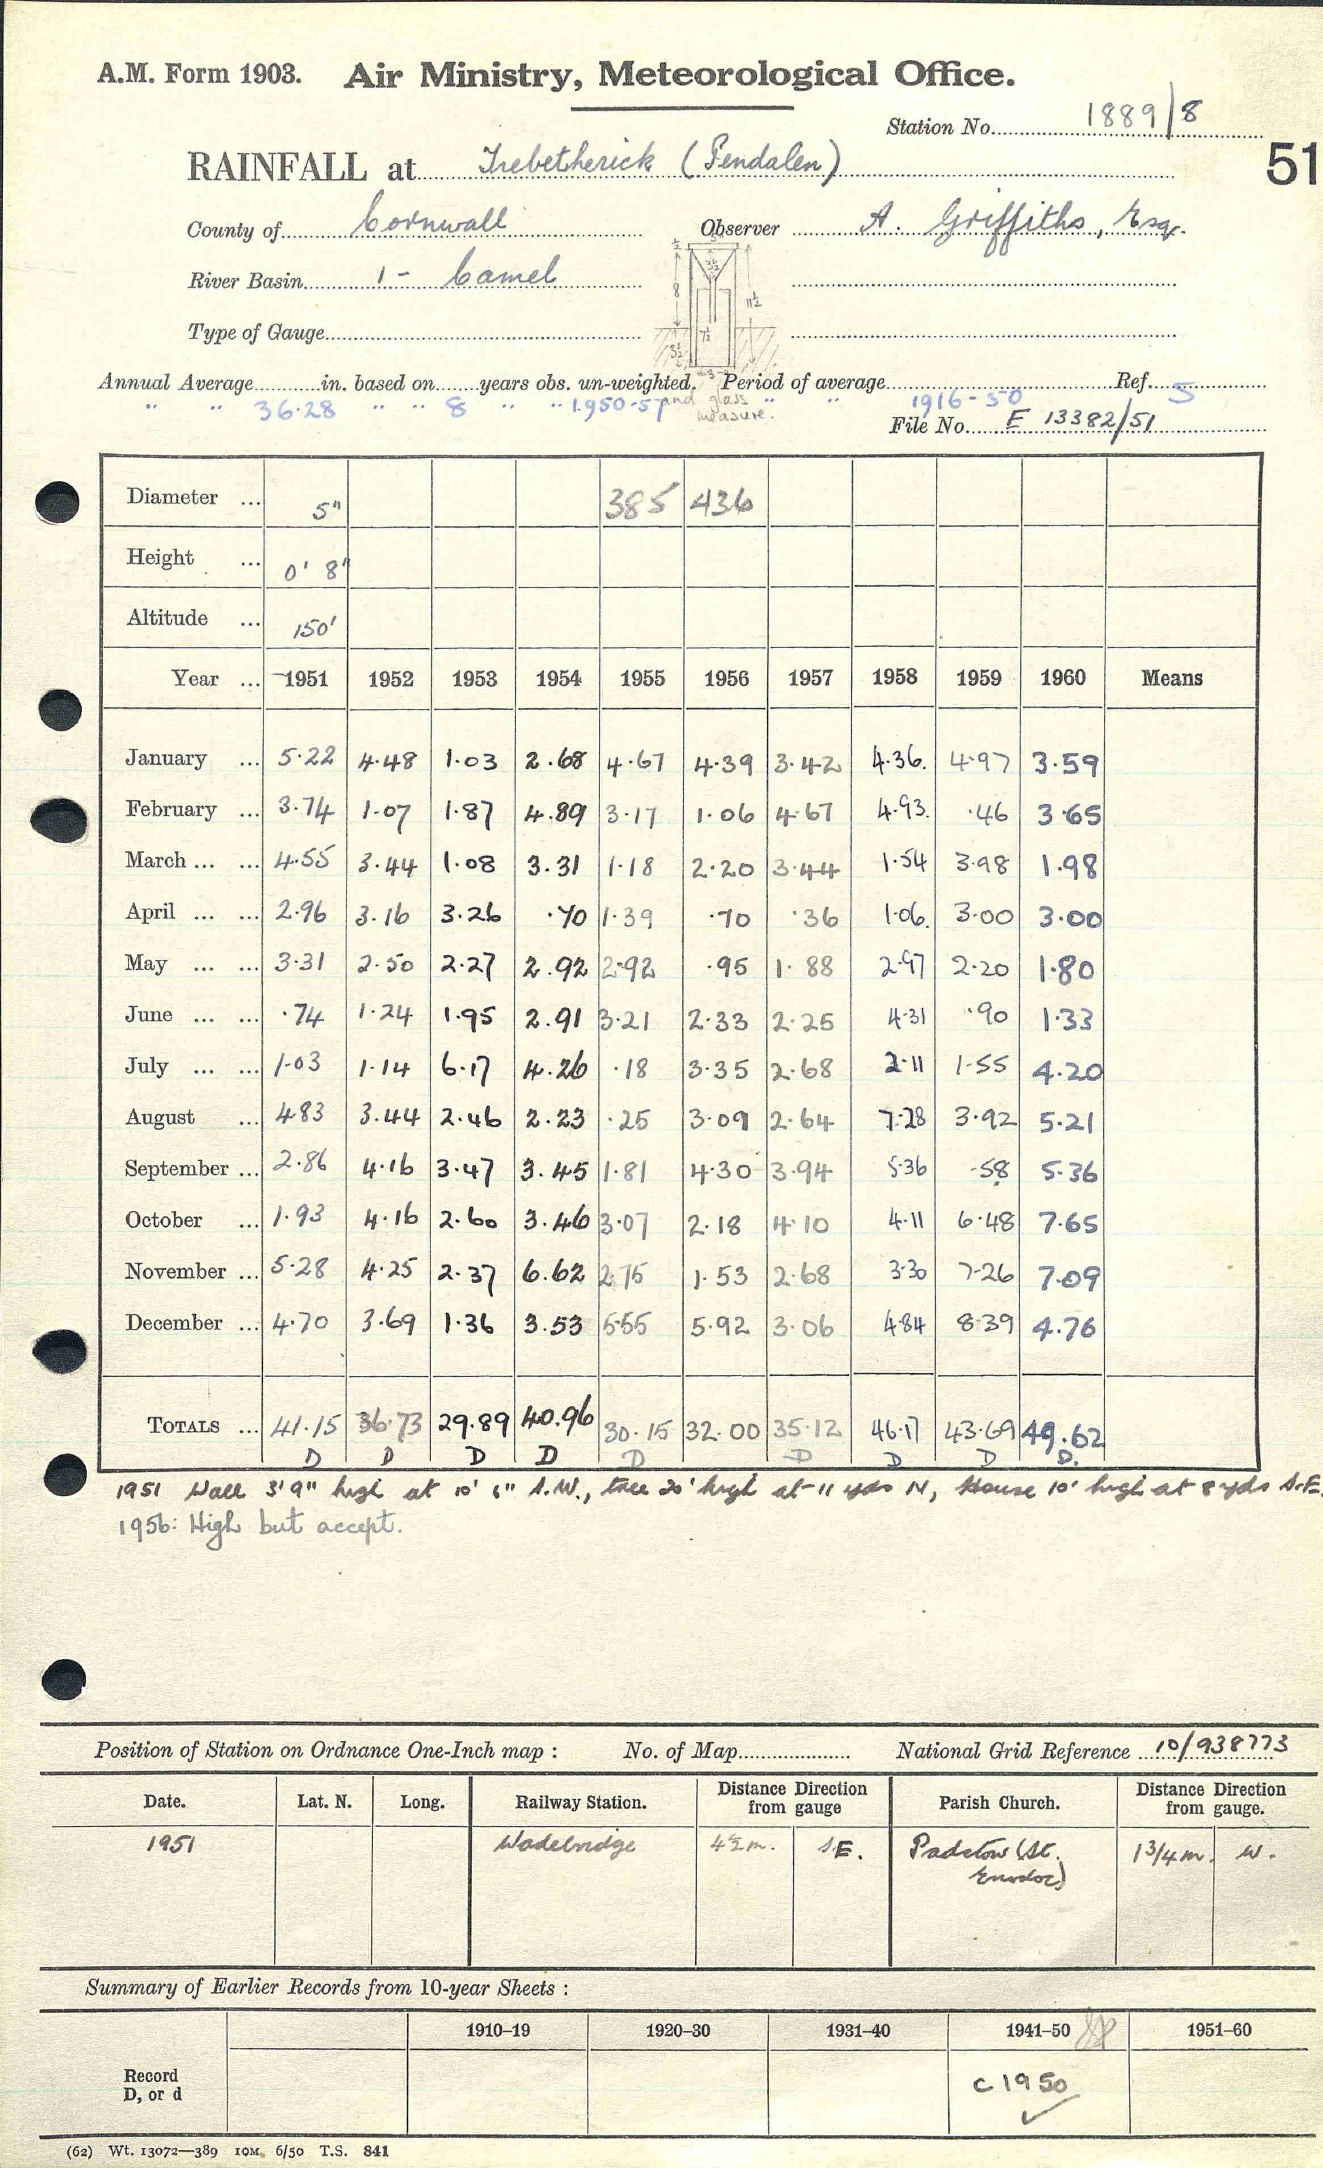 A.M. Form 1903. Air Ministry, Meteorological Office.
Station No. 1889/8
51
RAINFALL at Trebetherick (Pendalen)
County of Cornwall Observer A. Griffiths, Esq.
River Basin 1 - Camel
Type of Gauge
5 ½ 3½ 8 11½ 7½ 3½ 3
Annual Average in. based on years obs. un-weighted. Period of average Ref. 5
" " 36.28 " " 8 " " 1950-57 " " 1916-50
and glass measure.
File No. E 13382/51
Diameter ... 5" 385 436
Height ... 0' 8"
Altitude ... 150'
Year ... 1951 1952 1953 1954 1955 1956 1957 1958 1959 1960 Means
January ... 5.22 4.48 1.03 2.68 4.67 4.39 3.42 4.36. 4.97 3.59
February ... 3.74 1.07 1.87 4.89 3.17 1.06 4.67 4.93. .46 3.65
March ... ... 4.55 3.44 1.08 3.31 1.18 2.20 3.44 1.54 3.98 1.98
April ... ... 2.96 3.16 3.26 .70 1.39 .70 .36 1.06. 3.00 3.00
May ... ... 3.31 2.50 2.27 2.92 2.92 .95 1.88 2.97 2.20 1.80
June ... ... .74 1.24 1.95 2.91 3.21 2.33 2.25 4.31 .90 1.33
July ... ... 1.03 1.14 6.17 4.26 .18 3.35 2.68 2.11 1.55 4.20
August ... 4.83 3.44 2.46 2.23 .25 3.09 2.64 7.28 3.92 5.21
September ... 2.86 4.16 3.47 3.45 1.81 4.30 3.94 5.36 .58 5.36
October ... 1.93 4.16 2.60 3.46 3.07 2.18 4.10 4.11 6.48 7.65
November ... 5.28 4.25 2.37 6.62 2.75 1.53 2.68 3.30 7.26 7.09
December ... 4.70 3.69 1.36 3.53 5.55 5.92 3.06 4.84 8.39 4.76
TOTALS ... 41.15 36.73 29.89 40.96 30.15 32.00 35.12 46.17 43.69 49.62
D D D D D D D D D.
1951 Wall 3'9" high at 10' 6" S.W., tree 20' high at 11 yds N, House 10' high at 8 yds S.E.
1956: High but accept.
Position of Station on Ordnance One-Inch map : No. of Map National Grid Reference 10/938773
Date. Lat. N. Long. Railway Station. Distance Direction from gauge Parish Church. Distance Direction from gauge.
1951 Wadebridge 4½m. SE. Padstow (St. Enodoc) 1 3/4 m. W.
Summary of Earlier Records from 10-year Sheets :
1910–19 1920–30 1931–40 1941–50 1951–60
Record D, or d c 1950
(62) Wt. 13072—389 10M. 6/50 T.S. 841